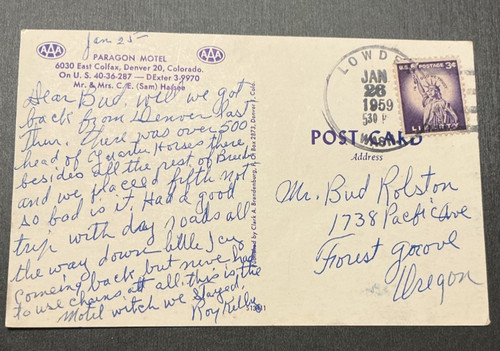 Jan 25
AAA
AAA
PARAGON MOTEL
6030 East Colfax, Denver 20, Colorado.
On U. S. 40-36-287 — DExter 3-9970
Mr. & Mrs. C. E. (Sam)
Dear Bud, well we got
back from Denver last
Thur. there was over 500
head of Quarter Horses there
besides all the rest of Breeds
and we placed fifth not
so bad is it. Had good
trip with dry roads all
the way down little Icy
comeing back but never had
to use chains at all, this is the
Motel witch we stayed,
Roy Kelly
by Clark A. Brandenburg, P.O. Box 2873, Denver 1, Colo.
LOWDE
JAN
26
530 P
1959
WASH
U.S. POSTAGE 3¢
LIBERTY
POST CARD
Address
Mr. Bud Rolston
1738 Pacific Ave
Forest groove
Oregon